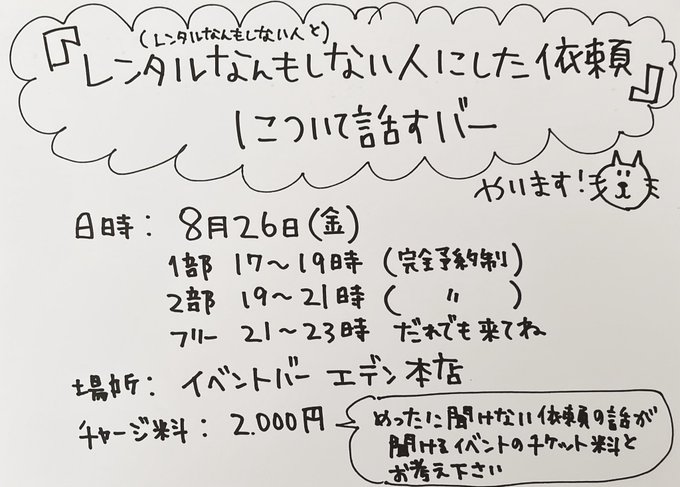 (レンタルなんもしない人と)
『レンタルなんもしない人にした依頼』
について話すバー
やります!
日時: 8月26日(金)
1部 17~19時 (完全予約制)
2部 19~21時 ( 〃 )
フリー 21~23時 だれでも来てね
場所: イベントバー エデン本店
チャージ料: 2.000円
めったに聞けない依頼の話が
聞けるイベントのチケット料と
お考え下さい